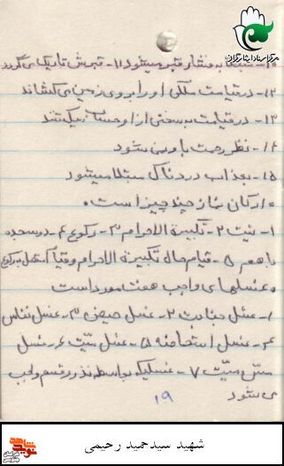 ۱۰- مبتلا به فشار قبر میشود ۱۱- قبرش تاریک می گردد
۱۲- در قیامت ملکی او را بروی زمین می کشاند
۱۳- در قیامت به سختی از او حساب میکشند
۱۴- نظر رحمت با او نمی شود
۱۵- بعذاب دردناک مبتلا میشود
ارکان نماز چند چیز است
۱- نیت ۲- تکبیرة الاحرام ۳- رکوع ۴- دو سجده
با هم ۵- قیام حال تکبیرة الاحرام و قیام متصل برکوع
غسلهای واجب هفت مورد است
۱- غسل جنابت ۲- غسل حیض ۳- غسل نفاس
۴- غسل استحاضه ۵- غسل میّت ۶- غسل
مس میّت ۷- غسلیکه بواسطه نذر و قسم واجب
می شود
۱۹
شهید سیدحمید رحیمی